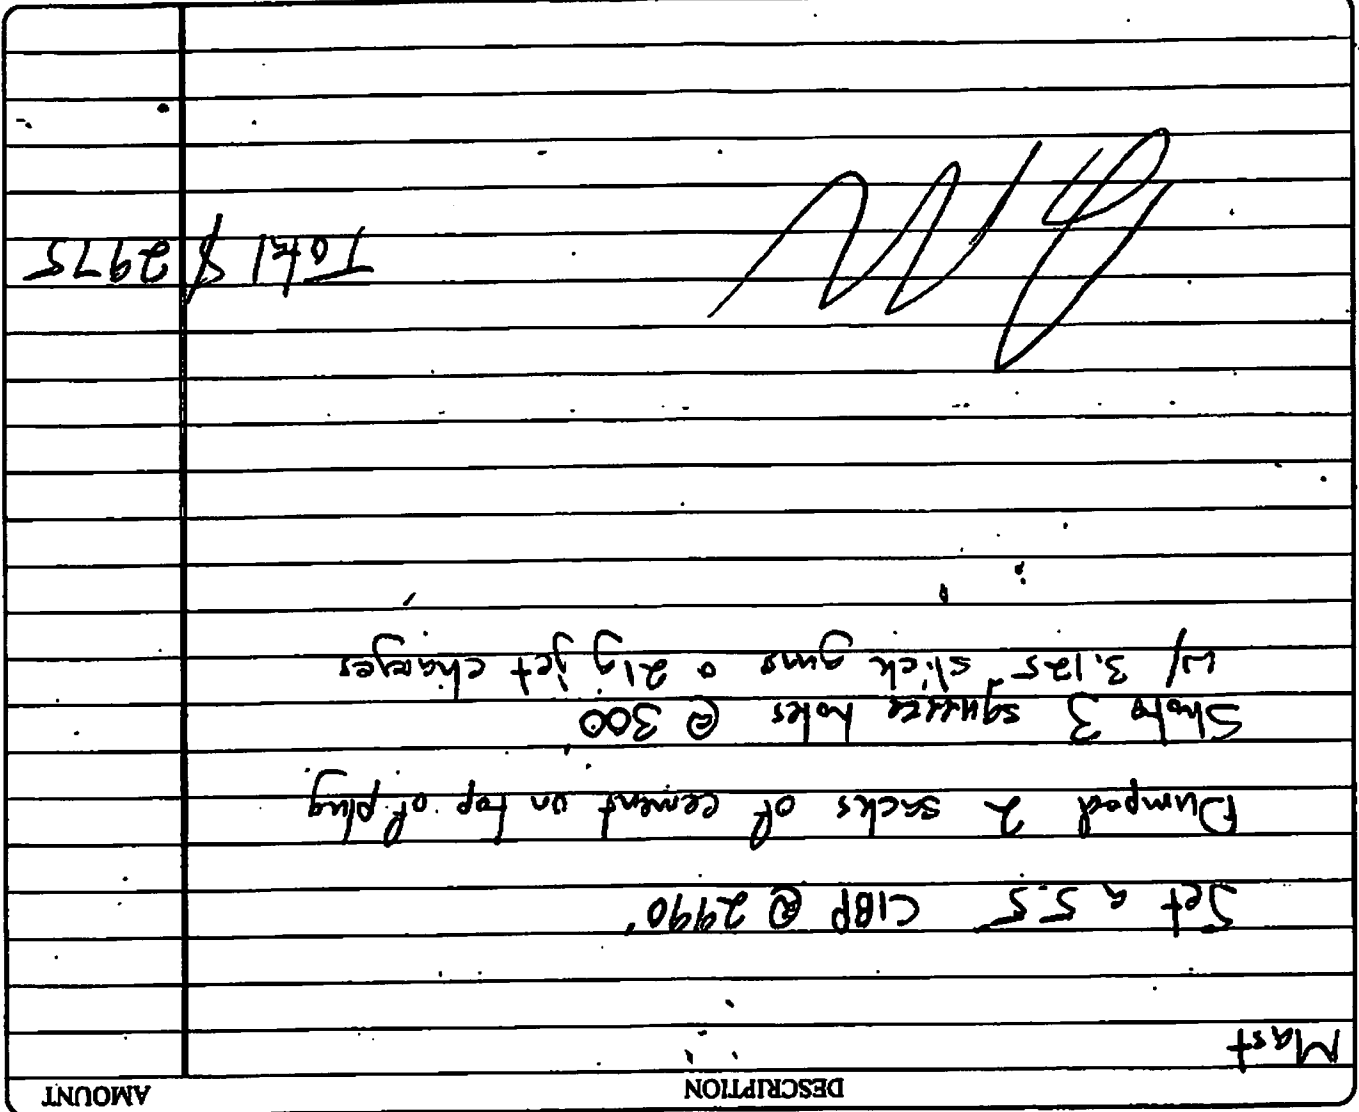 DESCRIPTION AMOUNT
Mast
Set a 5.5 CIBP @ 2990'
Dumped 2 sacks of cement on top of plug
Shoto 3 squeeze holes @ 300'
w/ 3.125" slick guns o 21g jet charges
Total $ 2975